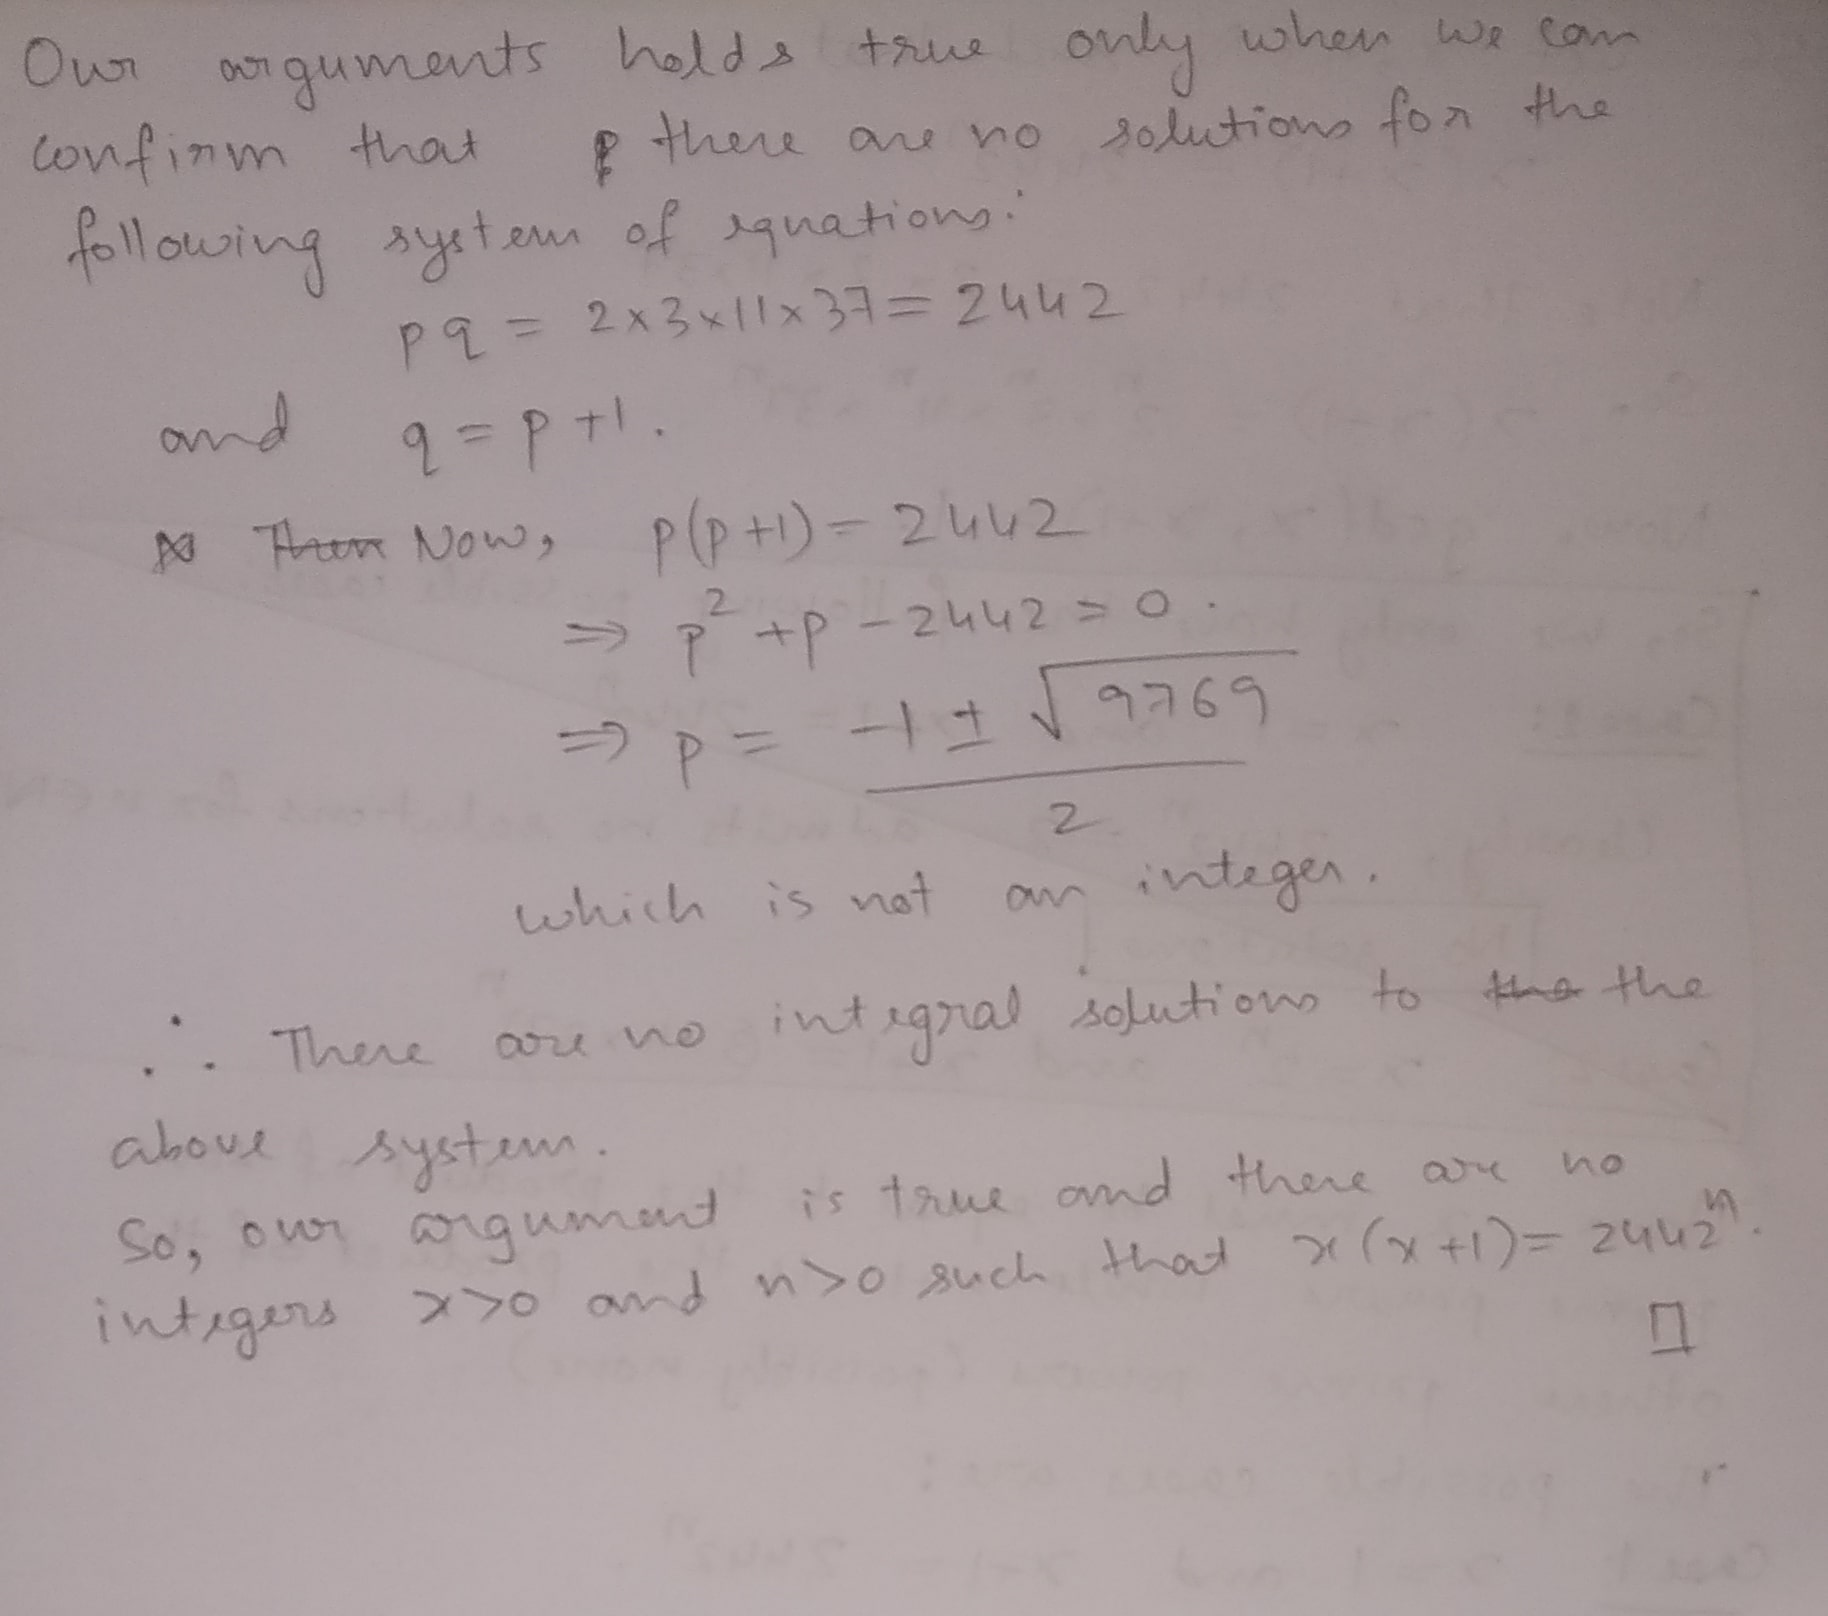 Our arguments holds true only when we can
confirm that there are no solutions for the
following system of equations:
pq = 2×3×11×37 = 2442
and q = p+1.
Then Now, p(p+1) = 2442
⇒ p² + p - 2442 = 0.
⇒ p = -1 ± √9769
2
which is not an integer.
∴ There are no integral solutions to the the
above system.
So, our argument is true and there are no
integers x>0 and n>0 such that x(x+1) = 2442ⁿ.